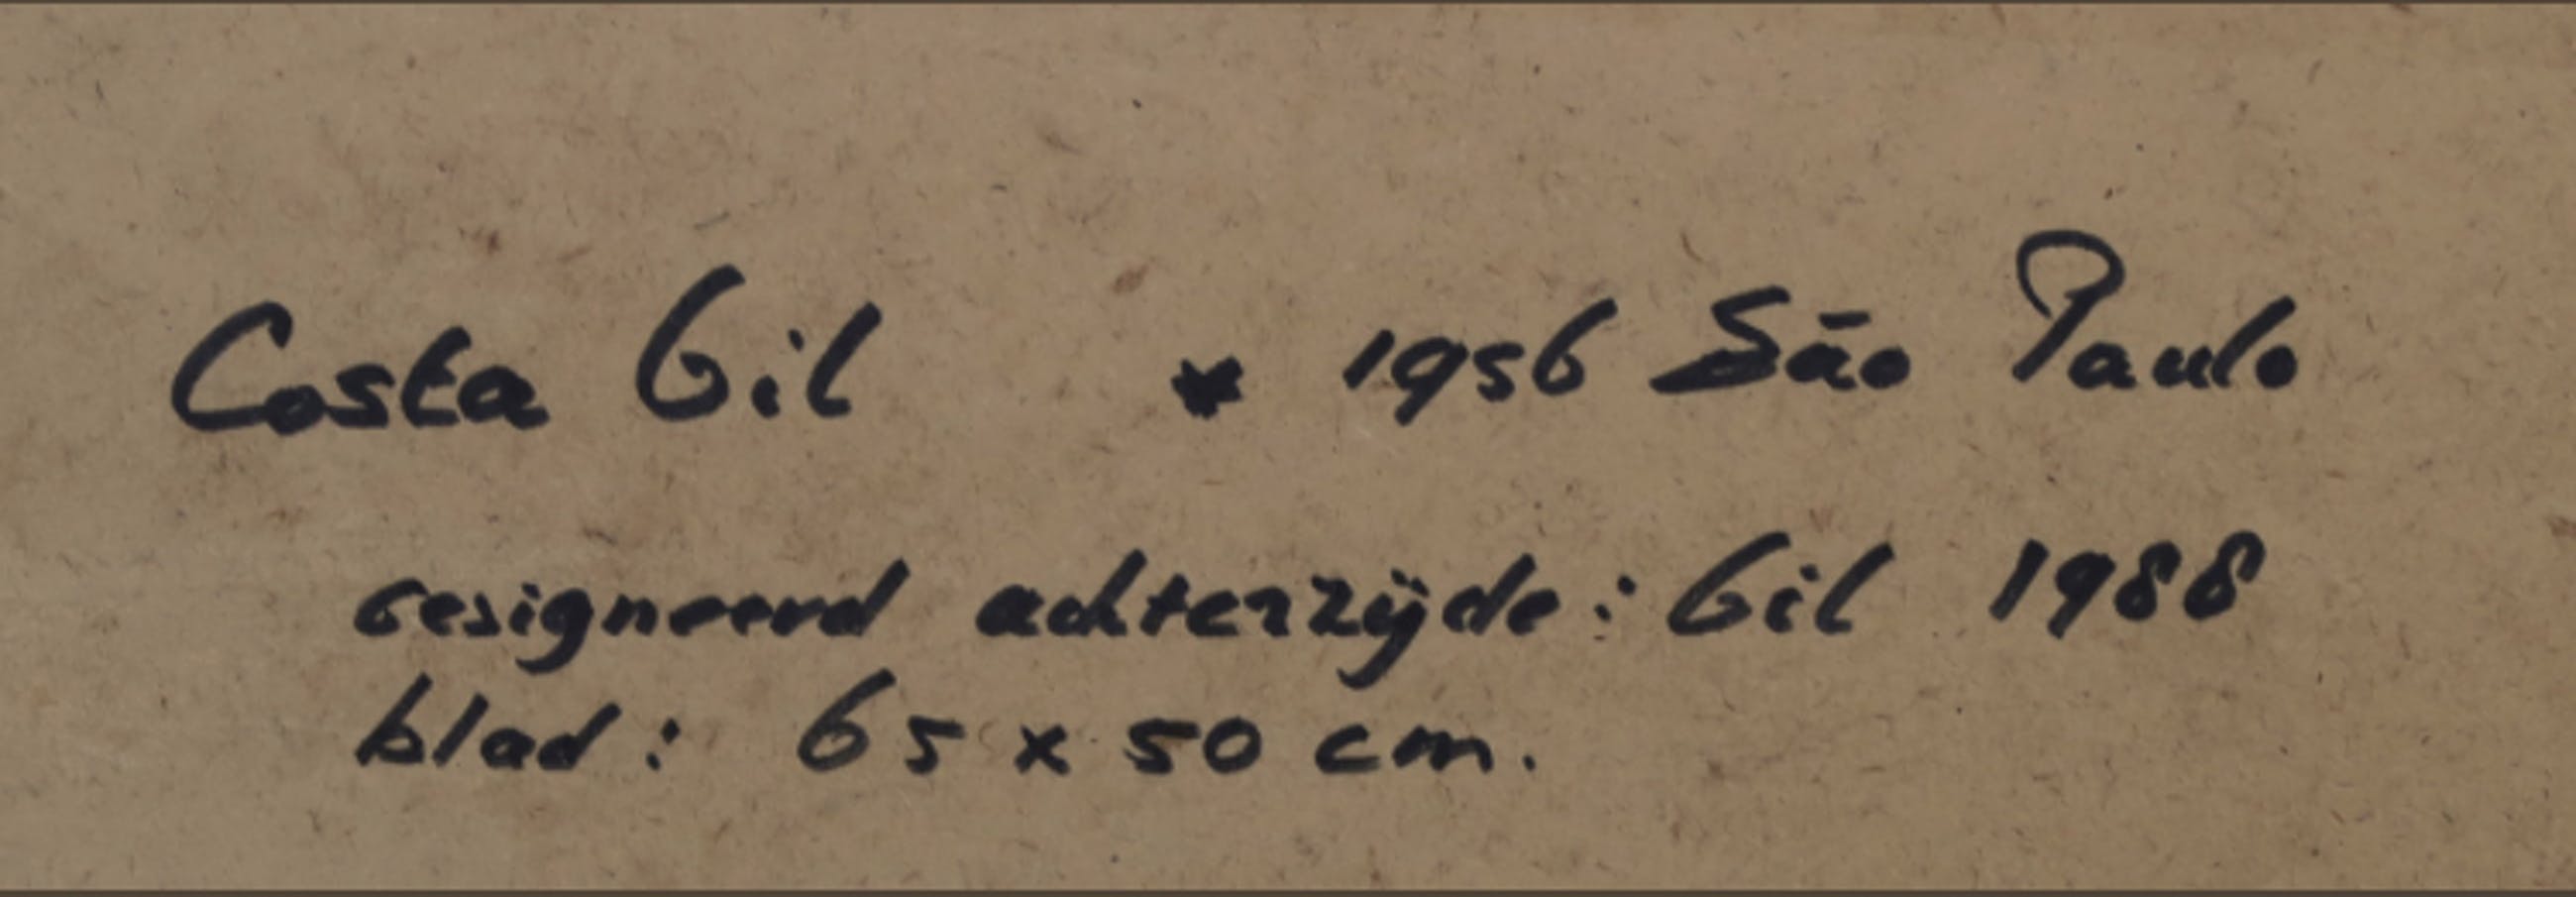 Costa Gil * 1956 São Paulo
Gesigneerd achterzijde: Gil 1988
blad: 65 x 50 cm.